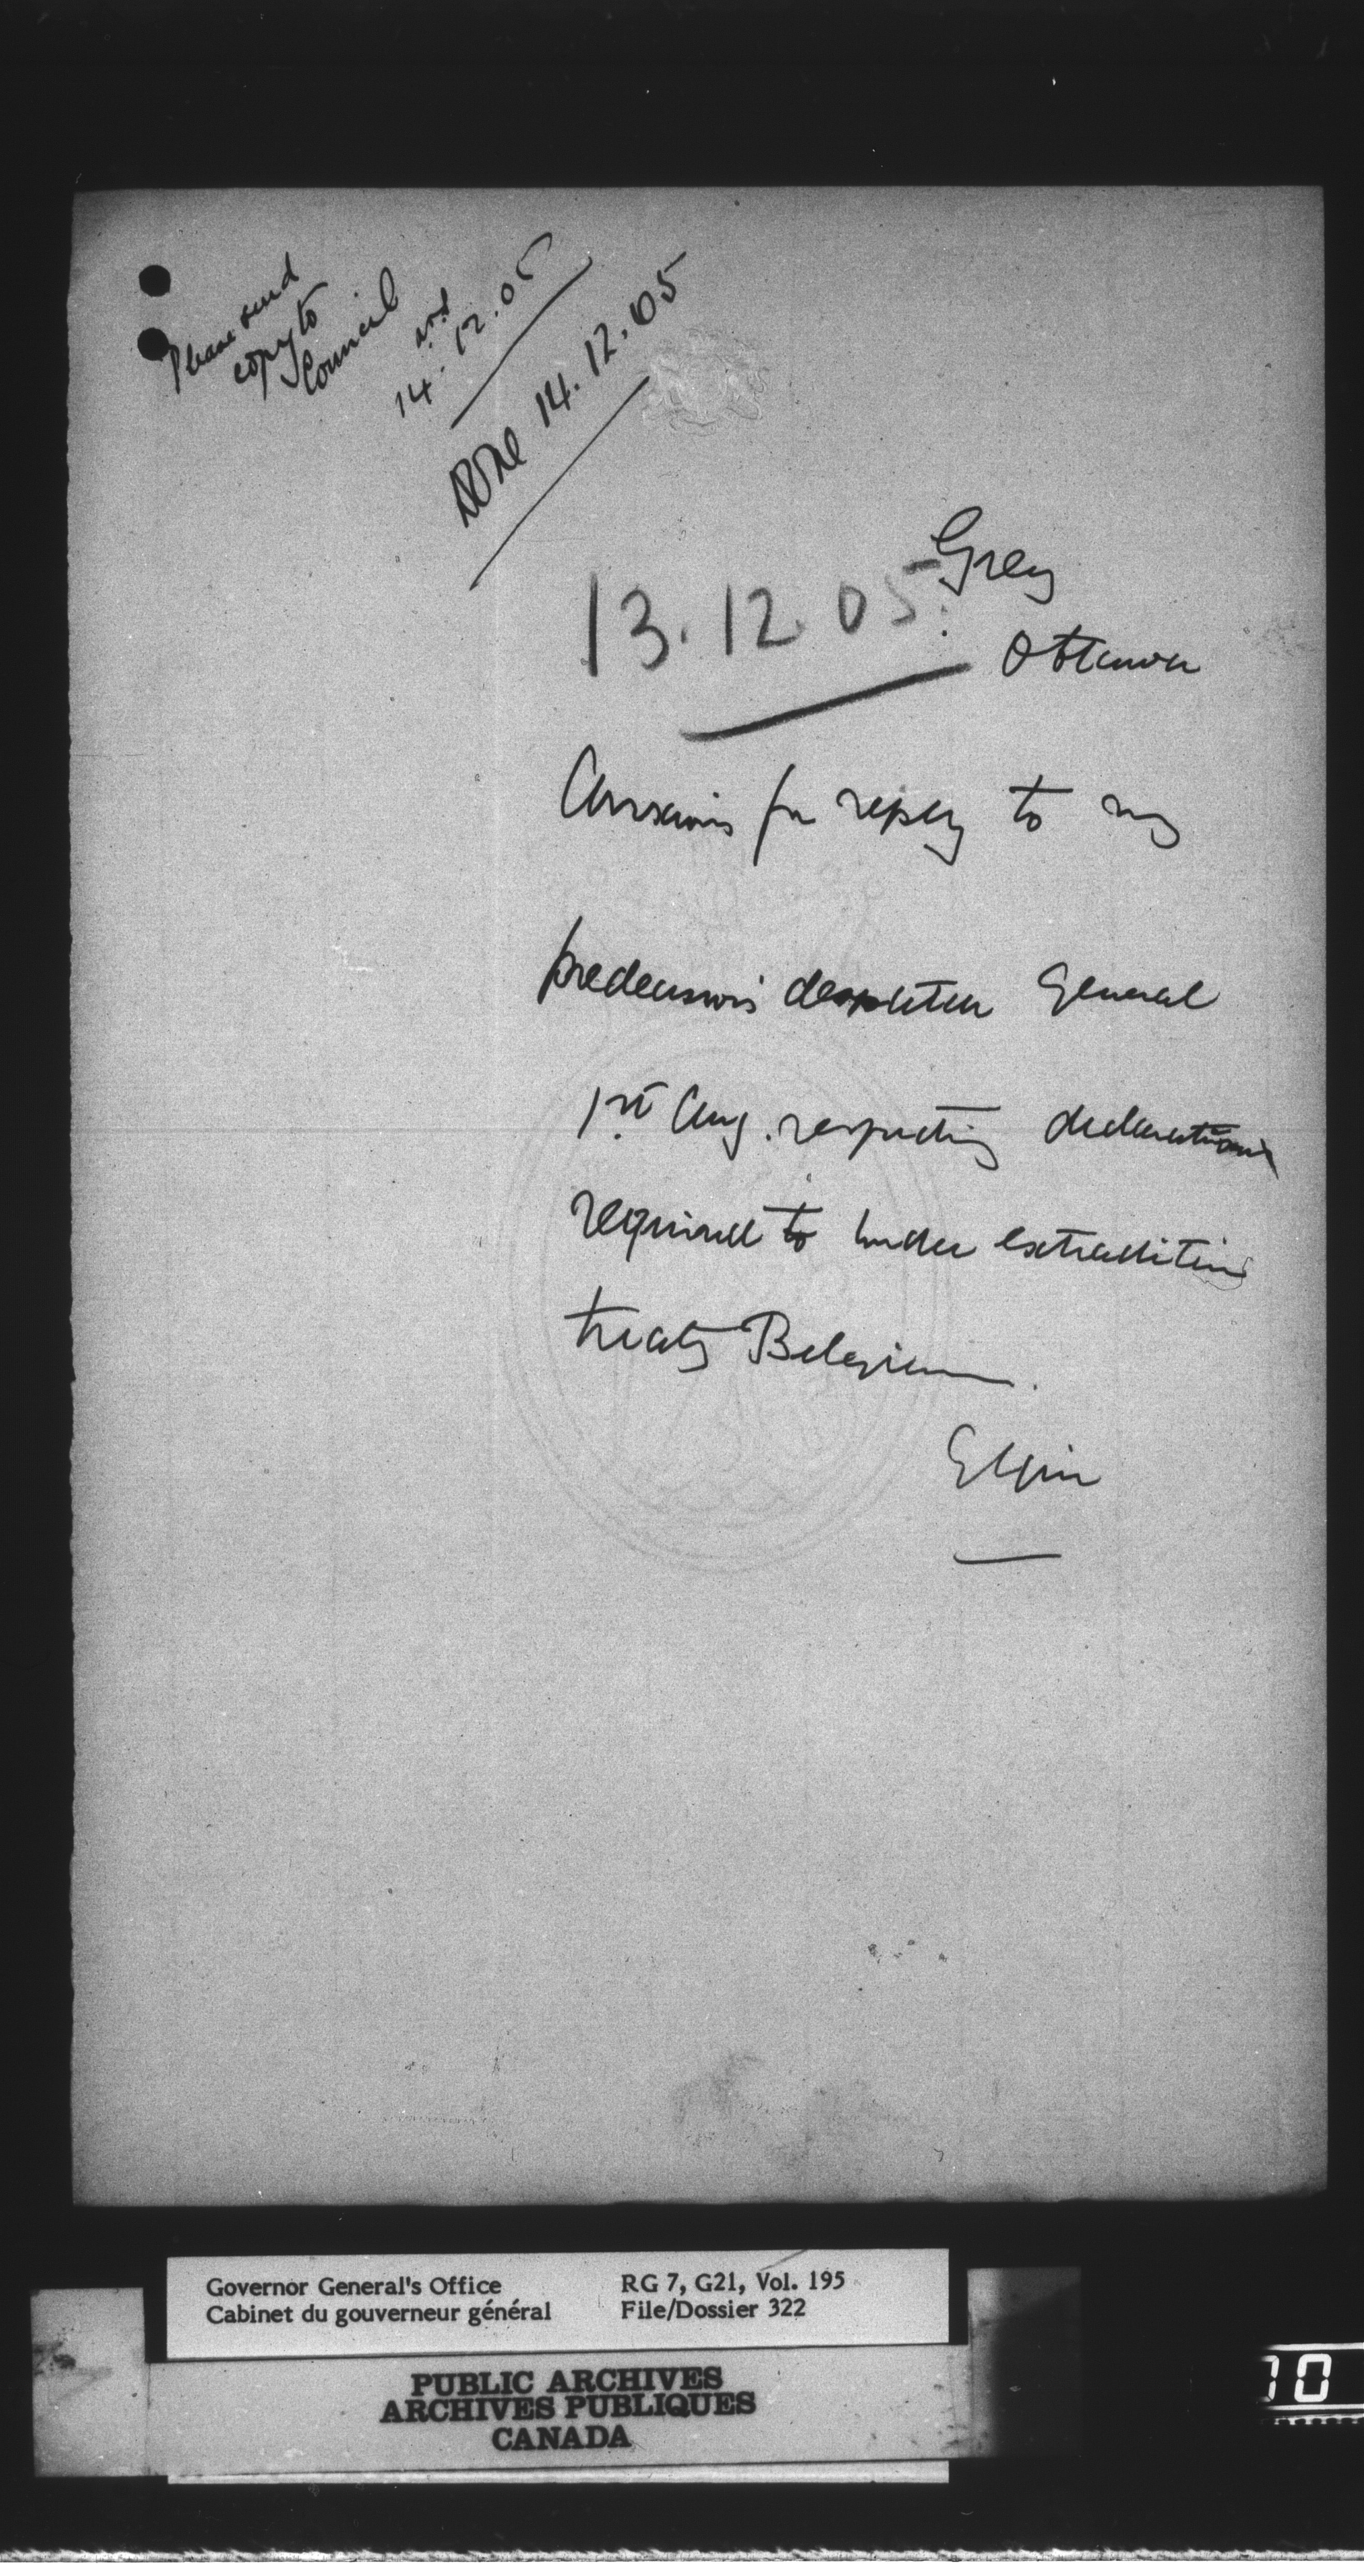 Please send
copy to
Council
14.12.05
Done 14.12.05
13.12.05
Grey
Ottawa
Anxious for reply to my
predecessor's despatch General
1st Aug. respecting declarations
required to under extradition
treaty Belgium.
Elgin
Governor General's Office
Cabinet du gouverneur général
RG 7, G21, Vol. 195
File/Dossier 322
PUBLIC ARCHIVES
ARCHIVES PUBLIQUES
CANADA